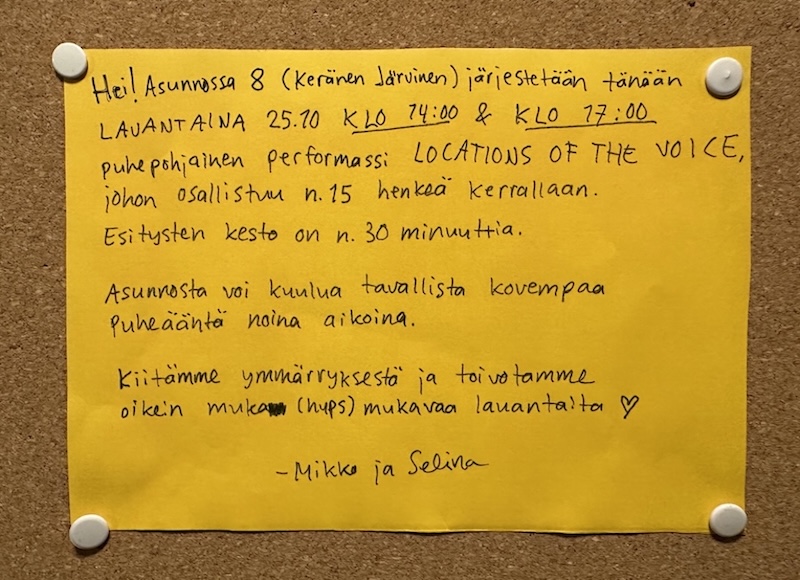 Hei! Asunnossa 8 (Keränen Järvinen) järjestetään tänään
LAUANTAINA 25.10 KLO 14:00 & KLO 17:00
puhepohjainen performassi LOCATIONS OF THE VOICE,
johon osallistuu n.15 henkeä kerrallaan.
Esitysten kesto on n. 30 minuuttia.
Asunnosta voi kuulua tavallista kovempaa
puheääntä noina aikoina.
Kiitämme ymmärryksestä ja toivotamme
oikein muka (hups) mukavaa lauantaita ♡
-Mikko ja Selina